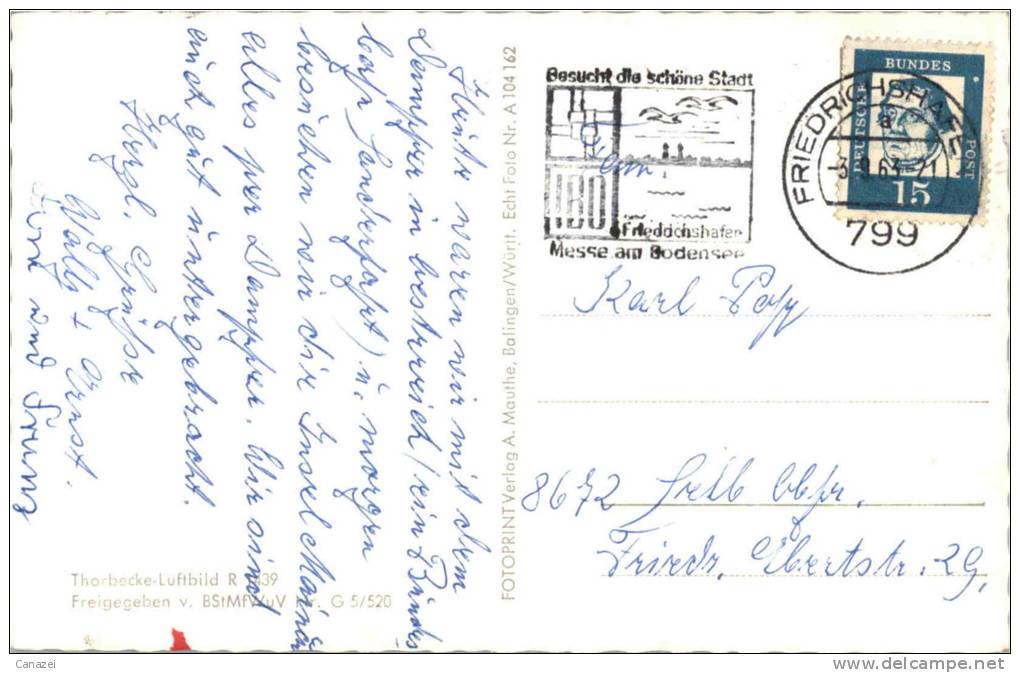 Heute waren wir mit dem
Dampfer in Oestreich (ein
u. morgen
besuchen wir die Insel Mainau
alles per Dampfer. Wir sind
auch gut untergebracht.
Herzl. Grüße
Wally + Ernst.
und
FOTOPRINT Verlag A. Mauthe, Balingen/Württ. Echt Foto Nr. A 104 162
Thorbecke-Luftbild R
Freigegeben v. BStMfWuV Nr. G 5/520
Besucht die schöne Stadt
IBO
Friedrichshafen
Messe am Bodensee
FRIEDRICHSHAFEN
a
799
BUNDES
DEUTSCHE
POST
15
Fam.
Karl Popp
8672 Selb Obfr.
Friedr. Ebertstr. 29,
Canazei
www.delcampe.net